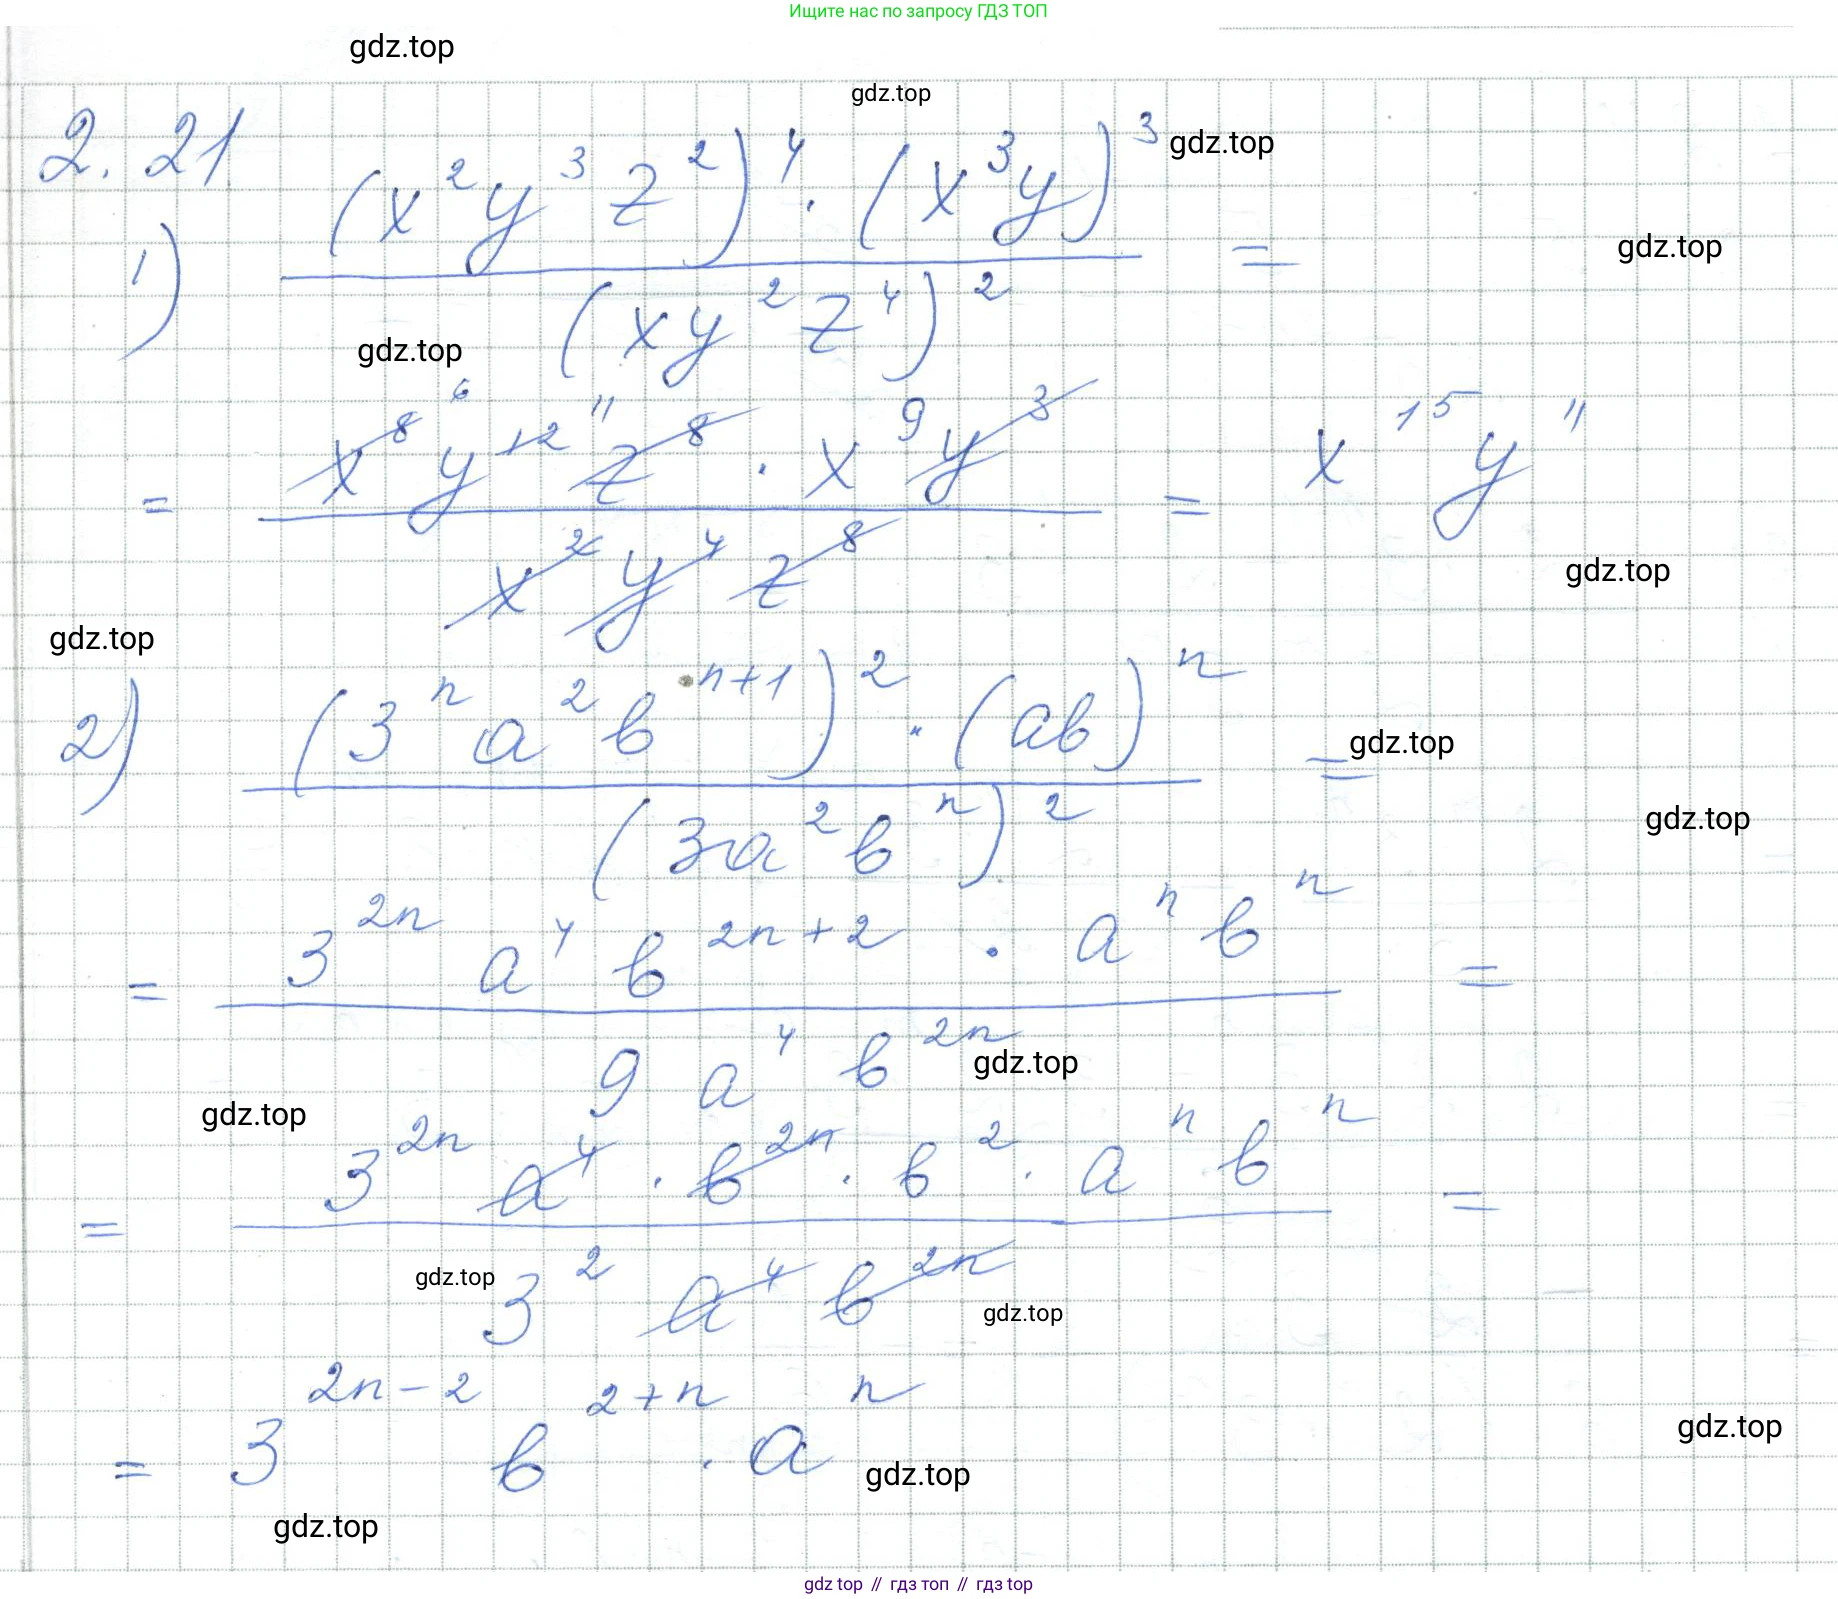 Ищите нас по запросу ГДЗ ТОП
gdz.top
gdz.top
2.21.
1) (x²y³z²)⁴ · (x³y)³ / (xy²z⁴)² =
gdz.top
gdz.top
gdz.top
= x⁸ ⁶ y¹² ¹¹ z⁸ · x⁹y³ / x²y⁴z⁸ = x¹⁵y¹¹
gdz.top
gdz.top
2) (3ⁿa²bⁿ⁺¹)² · (ab)ⁿ / (3a²bⁿ)² =
gdz.top
gdz.top
= 3²ⁿ a⁴ b²ⁿ⁺² · aⁿ bⁿ / 9 a⁴ b²ⁿ =
gdz.top
gdz.top
= 3²ⁿ a⁴ · b²ⁿ · b² · aⁿ bⁿ / 3² a⁴ b²ⁿ =
gdz.top
gdz.top
= 3²ⁿ⁻² b²⁺ⁿ · aⁿ
gdz.top
gdz.top
gdz.top
gdz top // гдз топ // gdz top